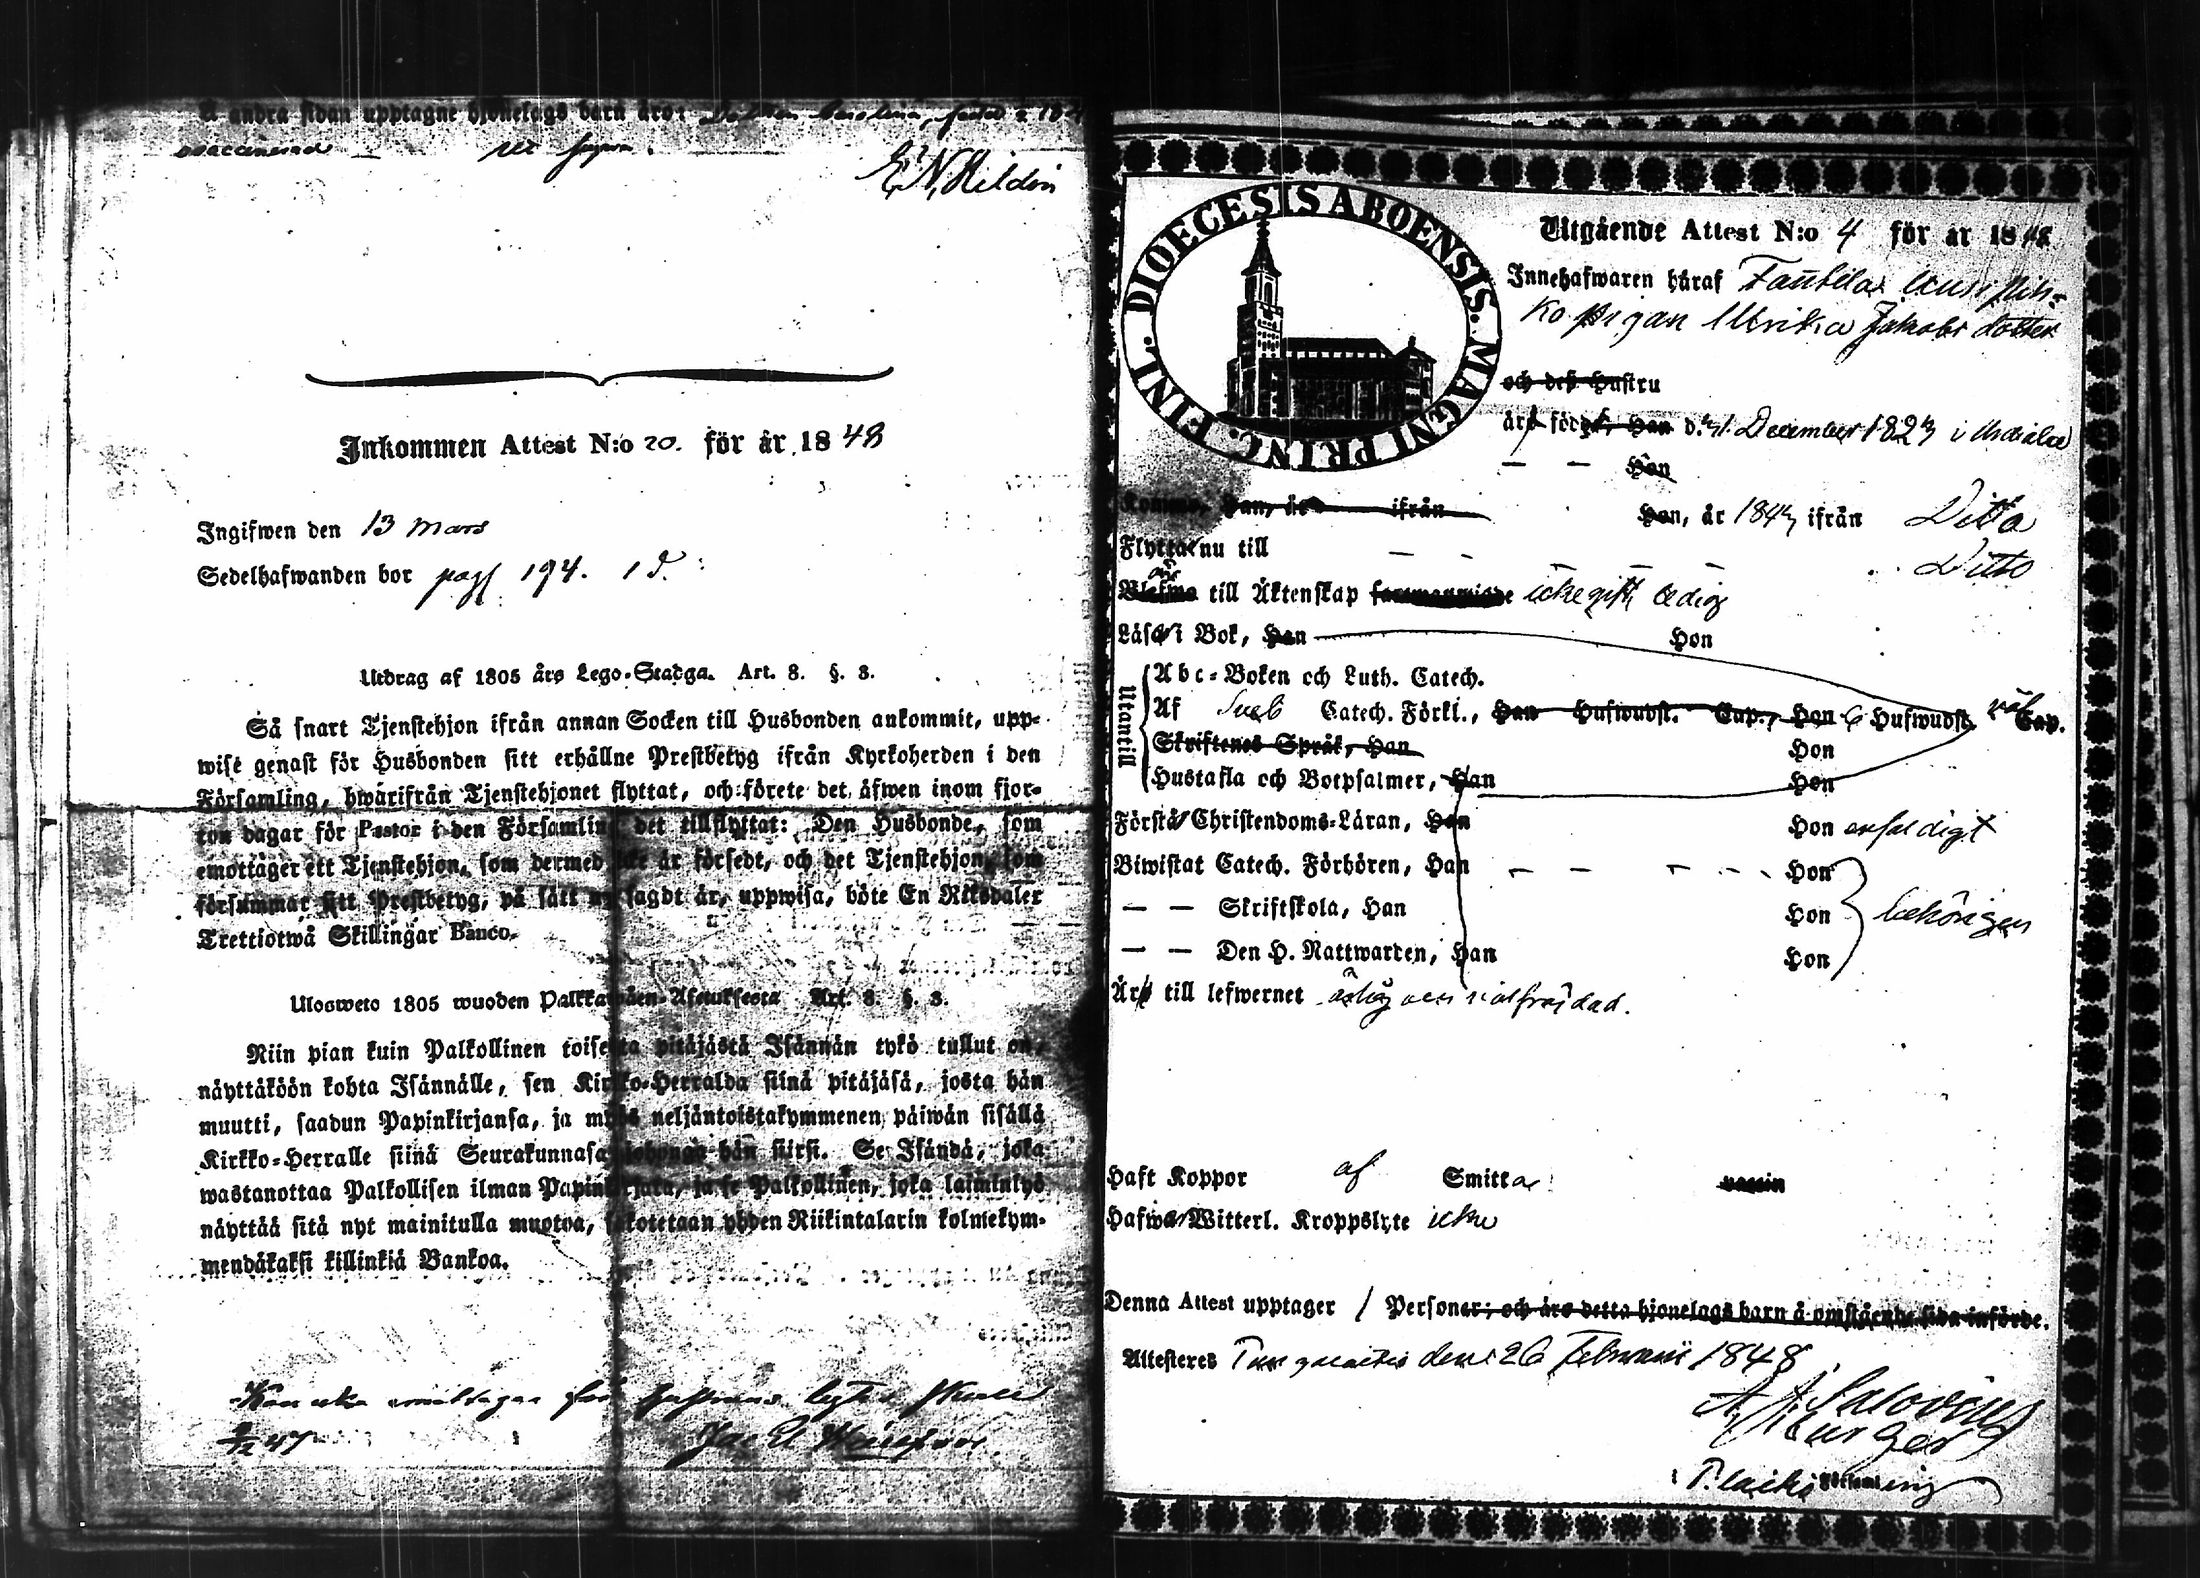 Å andra sidan upptagne hjonelags barn äro:
E. N. Hildén
Inkommen Attest N:o 20. för år 1848
Ingifwen den 13 Mars
Sedelhafwanden bor pag 194. 1 d.
Utdrag af 1805 års Lego-Stadga. Art. 8. §. 3.
Så snart Tjenstehjon ifrån annan Socken till Husbonden ankommit, upp-
wise genast för Husbonden sitt erhållne Prestbetyg ifrån Kyrkoherden i den
Församling, hwarifrån Tjenstehjonet flyttat, och förete det äfwen inom fjor-
ton dagar för Pastor i den Församling det tillflyttat: Den Husbonde, som
emottager ett Tjenstehjon, som dermed icke är försedt, och det Tjenstehjon, som
försummar sitt Prestbetyg, på sätt nu sagdt är, uppwisa, böte En Riksdaler
Trettiotwå Skillingar Banco.
Ulosweto 1805 wuoden Palkkawäen-Asetuksesta Art. 8. §. 3.
Niin pian kuin Palkollinen toisesta pitäjästä Isännän tykö tullut on,
näyttäköön kohta Isännälle, sen Kirkko-Herralda siinä pitäjäsä, josta hän
muutti, saadun Papinkirjansa, ja myös neljäntoistakymmenen päiwän sisällä
Kirkko-Herralle siinä Seurakunnasa johonga hän siirsi. Se Isändä, joka
wastanottaa Palkollisen ilman Papinkirjata, ja se Palkollinen, joka laiminlyö
näyttää sitä nyt mainitulla muotoa, sakotetaan yhden Riikintalarin kolmekym-
mendäkaksi killinkiä Bankoa.
DIOECESIS ABOENSIS. MAGNI PRINC. FINL.
Utgående Attest N:o 4 för år 1848
Innehafwaren häraf
pigan Ulrika Jakobs dotter
och deß Hustru
äro födde, Han d. December 182
Hon
Komne, Han, år ifrån Hon, år 184 ifrån Ditto
Flytta nu till Ditto
till Äktenskap icke gift, ledig
Läsa i Bok, Han Hon
Utantill
Abc-Boken och Luth. Catech.
Af Sveb Catech. Förkl., Han Hufwudst. Cap., Hon 6 Hufwudst. Cap.
Skriftenes Språk, Han Hon
Hustafla och Botpsalmer, Han Hon
Förstå Christendoms-Läran, Han Hon enfaldigt
Biwistat Catech. Förhören, Han Hon
— — Skriftskola, Han Hon behörigen
— — Den H. Nattwarden, Han Hon
Äro till lefwernet ärlig och wälfräjdad.
Haft Koppor af Smitta vaccin
Hafwa Witterl. Kroppslyte icke
Denna Attest upptager 1 Personer; och äro detta hjonelags barn å omstående sida införde.
Attesteres den 26 Februarii 1848
Församling